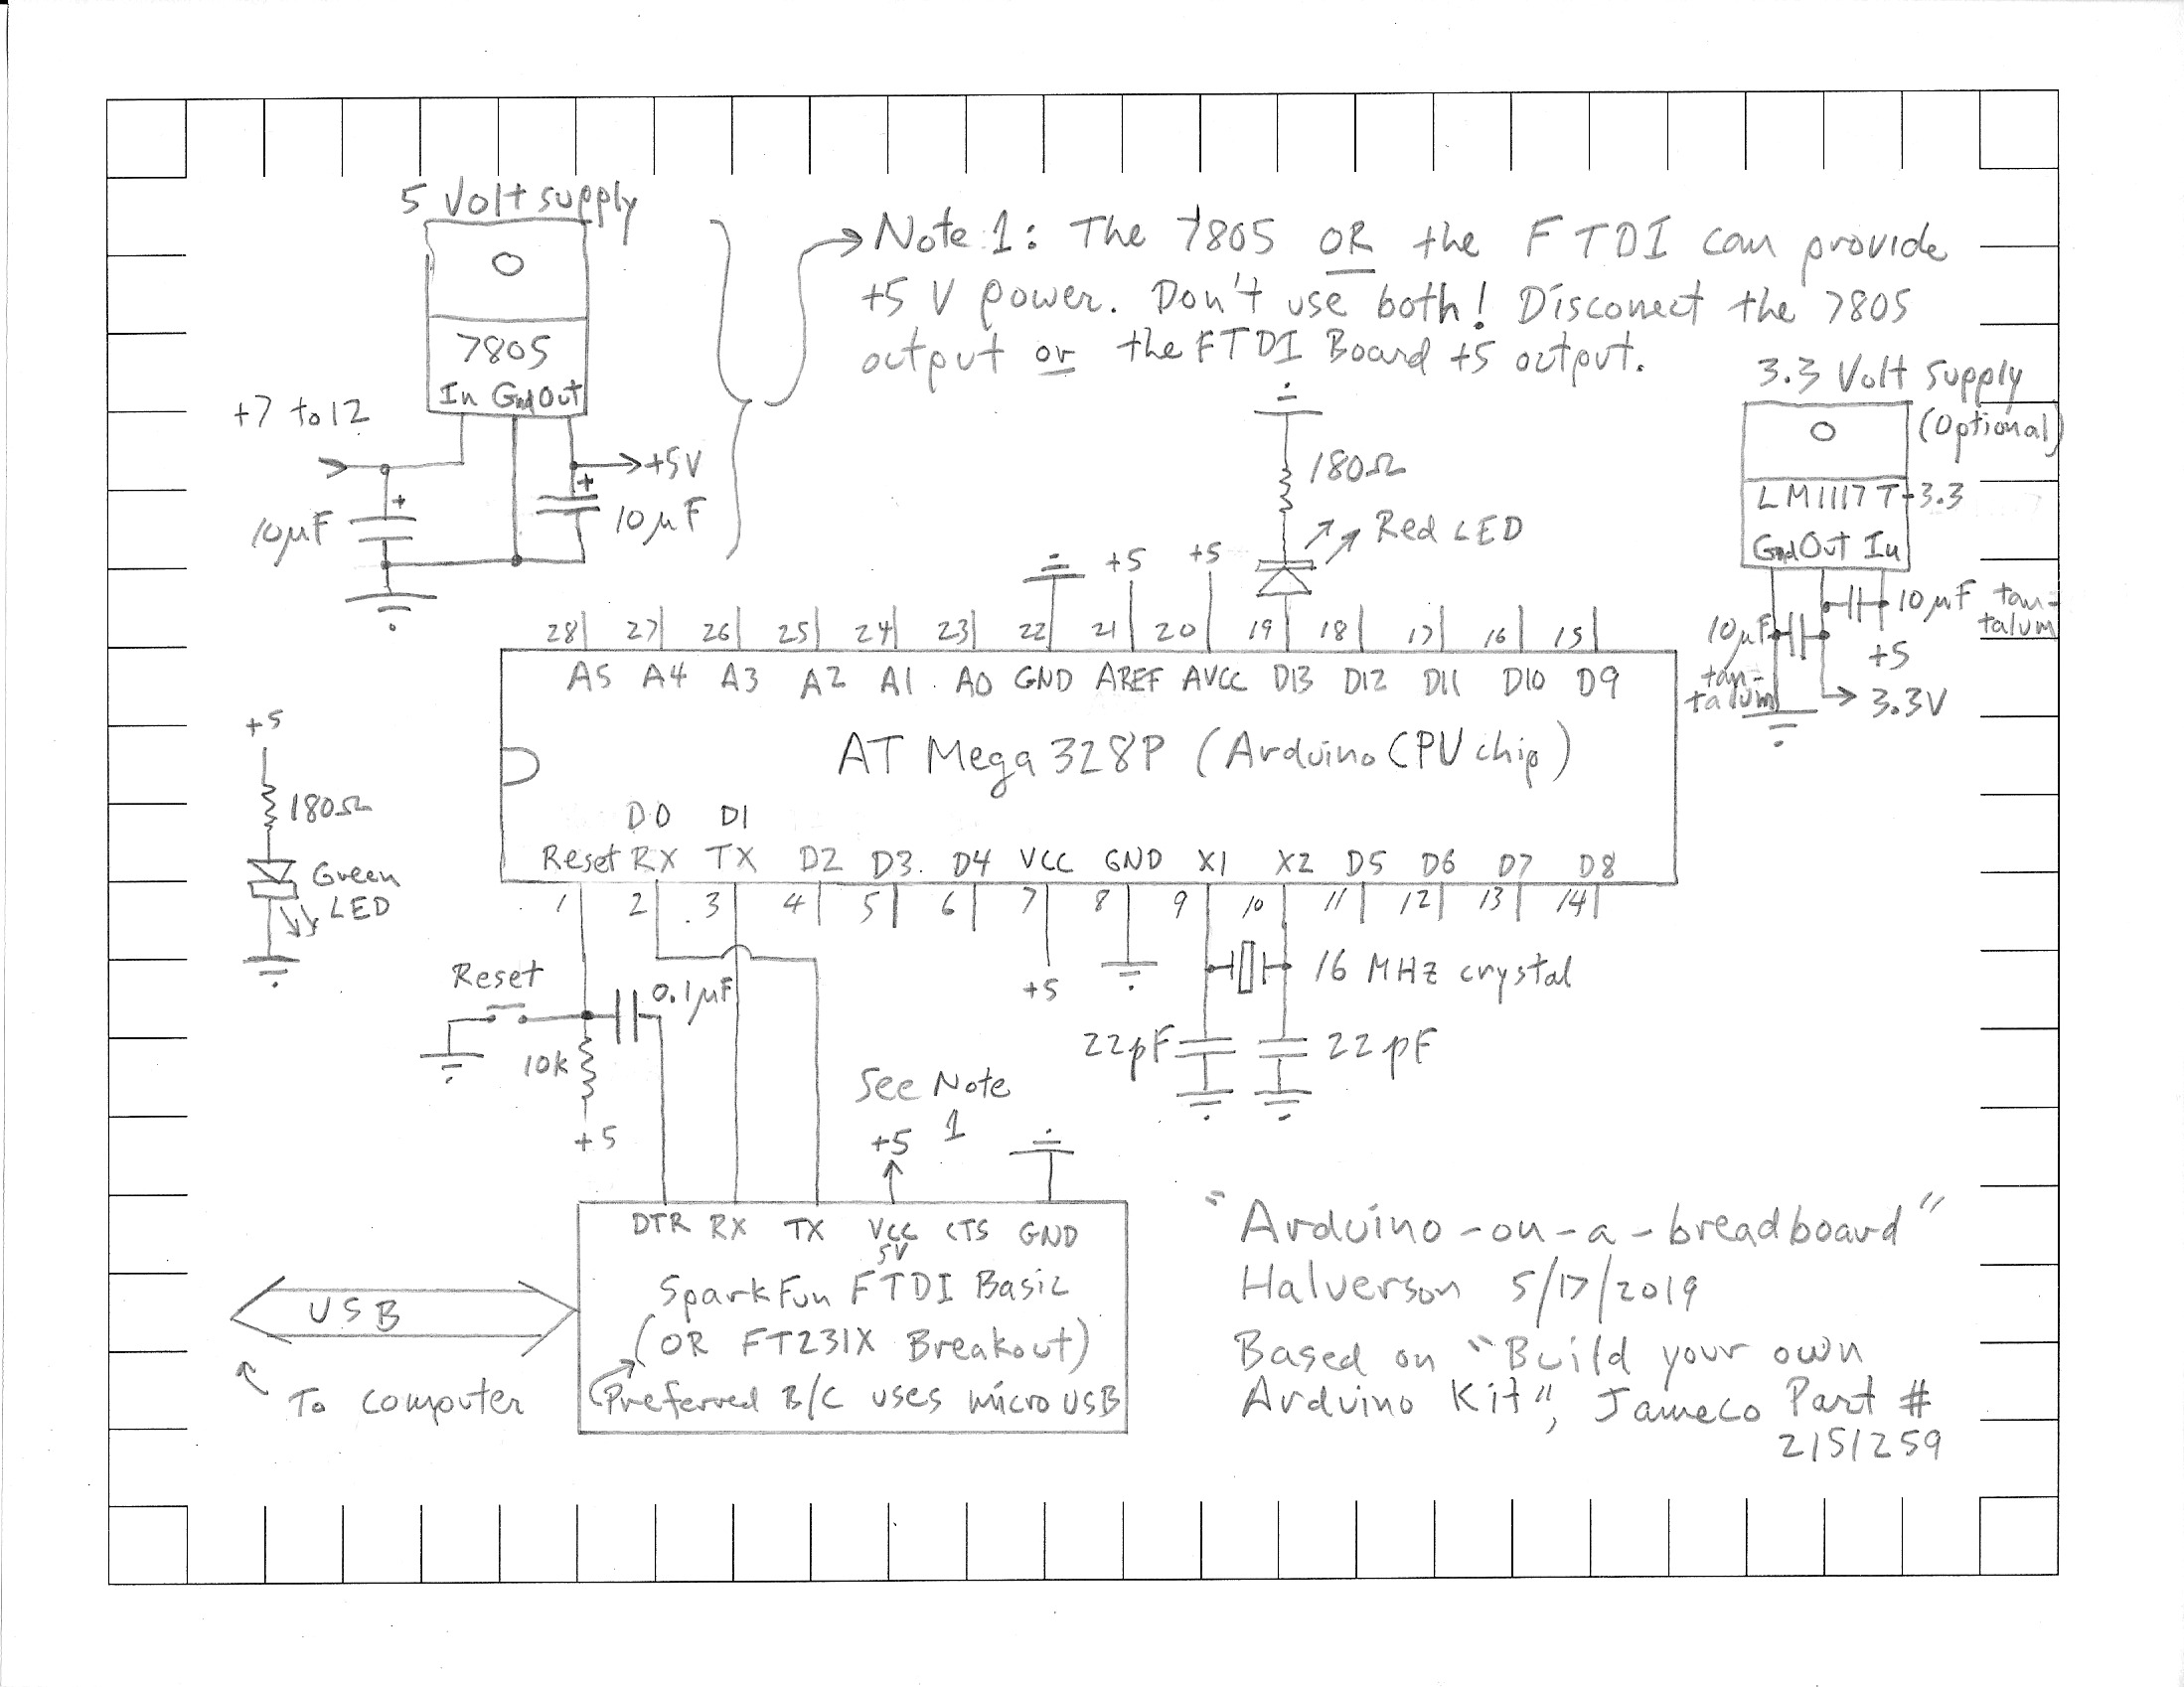 5 Volt supply
7805
In Gnd Out
+7 to 12
+5V
+
10µF
+
10µF
Note 1: The 7805 OR the FTDI can provide
+5 V power. Don't use both! Disconect the 7805
output or the FTDI Board +5 output.
3.3 Volt Supply
(Optional)
LM1117T-3.3
Gnd Out In
10µF tan-
talum
10µF
tan-
talum
+5
3.3V
180Ω
Red LED
+5
+5
28 27 26 25 24 23 22 21 20 19 18 17 16 15
A5 A4 A3 A2 A1 A0 GND AREF AVCC D13 D12 D11 D10 D9
AT Mega 328P (Arduino CPU chip)
D0 D1
Reset RX TX D2 D3 D4 VCC GND X1 X2 D5 D6 D7 D8
1 2 3 4 5 6 7 8 9 10 11 12 13 14
+5
180Ω
Green
LED
Reset
0.1µF
10k
+5
+5
16 MHz crystal
22pF
22pF
See Note
1
+5
DTR RX TX VCC CTS GND
5V
SparkFun FTDI Basic
(OR FT231X Breakout)
Preferred B/C uses micro USB
USB
To computer
"Arduino-on-a-breadboard"
Halverson 5/17/2019
Based on "Build your own
Arduino Kit", Jameco Part #
2151259